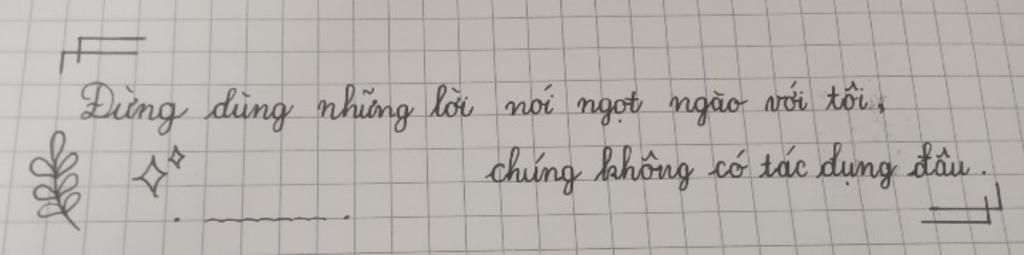 Đừng dùng những lời nói ngọt ngào với tôi,
chúng không có tác dụng đâu.